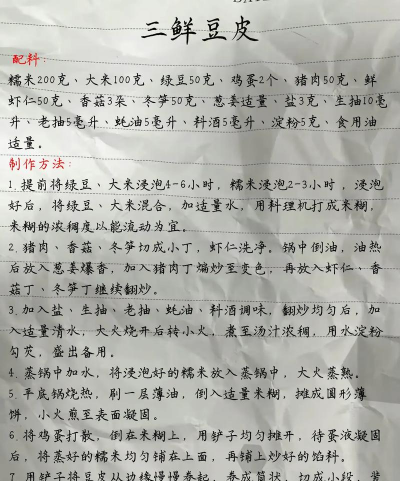 三鲜豆皮
配料：
糯米200克、大米100克、绿豆50克、鸡蛋2个、猪肉50克、鲜
虾仁50克、香菇3朵、冬笋50克、葱姜适量、盐3克、生抽10毫
升、老抽5毫升、蚝油5毫升、料酒5毫升、淀粉5克、食用油
适量。
制作方法：
1. 提前将绿豆、大米浸泡4-6小时，糯米浸泡2-3小时，浸泡
好后，将绿豆、大米混合，加适量水，用料理机打成米糊，
米糊的浓稠度以能流动为宜。
2. 猪肉、香菇、冬笋切成小丁，虾仁洗净。锅中倒油，油热
后放入葱姜爆香，加入猪肉丁煸炒至变色，再放入虾仁、香
菇丁、冬笋丁继续翻炒。
3. 加入盐、生抽、老抽、蚝油、料酒调味，翻炒均匀后，加
入适量清水，大火烧开后转小火，煮至汤汁浓稠，用水淀粉
勾芡，盛出备用。
4. 蒸锅中加水，将浸泡好的糯米放入蒸锅中，大火蒸熟。
5. 平底锅烧热，刷一层薄油，倒入适量米糊，摊成圆形薄
饼，小火煎至表面凝固。
6. 将鸡蛋打散，倒在米糊上，用铲子均匀摊开，待蛋液凝固
后，将蒸好的糯米均匀铺在上面，再铺上炒好的馅料。
7. 用铲子将豆皮从边缘慢慢卷起，卷成筒状，切成小段，装